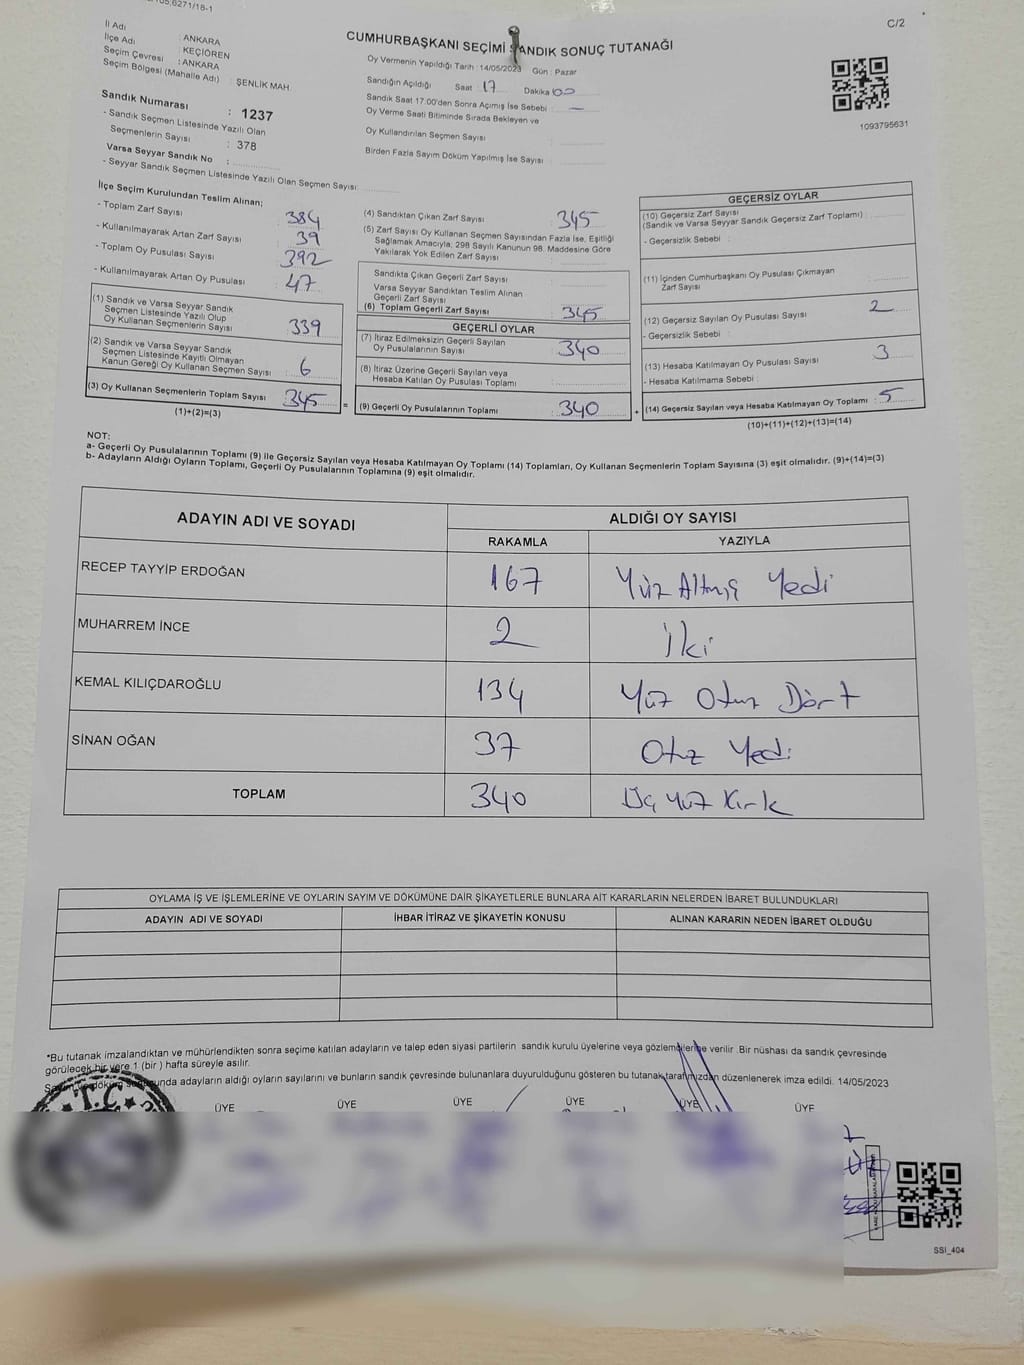 C/2
İl Adı : ANKARA
İlçe Adı : KEÇİÖREN
Seçim Çevresi : ANKARA
Seçim Bölgesi (Mahalle Adı) : ŞENLİK MAH.
CUMHURBAŞKANI SEÇİMİ SANDIK SONUÇ TUTANAĞI
Oy Vermenin Yapıldığı Tarih : 14/05/2023 Gün : Pazar
Sandığın Açıldığı Saat : 17 Dakika : 00
Sandık Saat 17.00'den Sonra Açılmış İse Sebebi : —
Oy Verme Saati Bitiminde Sırada Bekleyen ve
Oy Kullandırılan Seçmen Sayısı :
Birden Fazla Sayım Döküm Yapılmış İse Sayısı :
1093795631
Sandık Numarası : 1237
- Sandık Seçmen Listesinde Yazılı Olan
Seçmenlerin Sayısı : 378
Varsa Seyyar Sandık No :
- Seyyar Sandık Seçmen Listesinde Yazılı Olan Seçmen Sayısı:
İlçe Seçim Kurulundan Teslim Alınan;
- Toplam Zarf Sayısı : 384
- Kullanılmayarak Artan Zarf Sayısı : 39
- Toplam Oy Pusulası Sayısı : 392
- Kullanılmayarak Artan Oy Pusulası : 47
(1) Sandık ve Varsa Seyyar Sandık
Seçmen Listesinde Yazılı Olup
Oy Kullanan Seçmenlerin Sayısı : 339
(2) Sandık ve Varsa Seyyar Sandık
Seçmen Listesinde Kayıtlı Olmayan
Kanun Gereği Oy Kullanan Seçmen Sayısı : 6
(3) Oy Kullanan Seçmenlerin Toplam Sayısı : 345 =
(1)+(2)=(3)
(4) Sandıktan Çıkan Zarf Sayısı : 345
(5) Zarf Sayısı Oy Kullanan Seçmen Sayısından Fazla İse, Eşitliği
Sağlamak Amacıyla; 298 Sayılı Kanunun 98. Maddesine Göre
Yakılarak Yok Edilen Zarf Sayısı :
Sandıkta Çıkan Geçerli Zarf Sayısı :
Varsa Seyyar Sandıktan Teslim Alınan
Geçerli Zarf Sayısı :
(6) Toplam Geçerli Zarf Sayısı : 345
GEÇERLİ OYLAR
(7) İtiraz Edilmeksizin Geçerli Sayılan
Oy Pusulalarının Sayısı : 340
(8) İtiraz Üzerine Geçerli Sayılan veya
Hesaba Katılan Oy Pusulası Toplamı :
(9) Geçerli Oy Pusulalarının Toplamı : 340 +
GEÇERSİZ OYLAR
(10) Geçersiz Zarf Sayısı
(Sandık ve Varsa Seyyar Sandık Geçersiz Zarf Toplamı) :
- Geçersizlik Sebebi :
(11) İçinden Cumhurbaşkanı Oy Pusulası Çıkmayan
Zarf Sayısı :
(12) Geçersiz Sayılan Oy Pusulası Sayısı : 2
- Geçersizlik Sebebi :
(13) Hesaba Katılmayan Oy Pusulası Sayısı : 3
- Hesaba Katılmama Sebebi :
(14) Geçersiz Sayılan veya Hesaba Katılmayan Oy Toplamı : 5
(10)+(11)+(12)+(13)=(14)
NOT:
a- Geçerli Oy Pusulalarının Toplamı (9) ile Geçersiz Sayılan veya Hesaba Katılmayan Oy Toplamı (14) Toplamları, Oy Kullanan Seçmenlerin Toplam Sayısına (3) eşit olmalıdır. (9)+(14)=(3)
b- Adayların Aldığı Oyların Toplamı, Geçerli Oy Pusulalarının Toplamına (9) eşit olmalıdır.
ADAYIN ADI VE SOYADI ALDIĞI OY SAYISI
RAKAMLA YAZIYLA
RECEP TAYYİP ERDOĞAN 167 Yüz Altmış Yedi
MUHARREM İNCE 2 İki
KEMAL KILIÇDAROĞLU 134 Yüz Otuz Dört
SİNAN OĞAN 37 Otuz Yedi
TOPLAM 340 Üç Yüz Kırk
OYLAMA İŞ VE İŞLEMLERİNE VE OYLARIN SAYIM VE DÖKÜMÜNE DAİR ŞİKAYETLERLE BUNLARA AİT KARARLARIN NELERDEN İBARET BULUNDUKLARI
ADAYIN ADI VE SOYADI İHBAR İTİRAZ VE ŞİKAYETİN KONUSU ALINAN KARARIN NEDEN İBARET OLDUĞU
*Bu tutanak imzalandıktan ve mühürlendikten sonra seçime katılan adayların ve talep eden siyasi partilerin sandık kurulu üyelerine veya gözlemcilerine verilir. Bir nüshası da sandık çevresinde
görülecek bir yere 1 (bir) hafta süreyle asılır.
Sayım ve döküm sonucunda adayların aldığı oyların sayılarını ve bunların sandık çevresinde bulunanlara duyurulduğunu gösteren bu tutanak tarafımızdan düzenlenerek imza edildi. 14/05/2023
T.C.
ÜYE ÜYE ÜYE ÜYE ÜYE ÜYE
SSİ_404